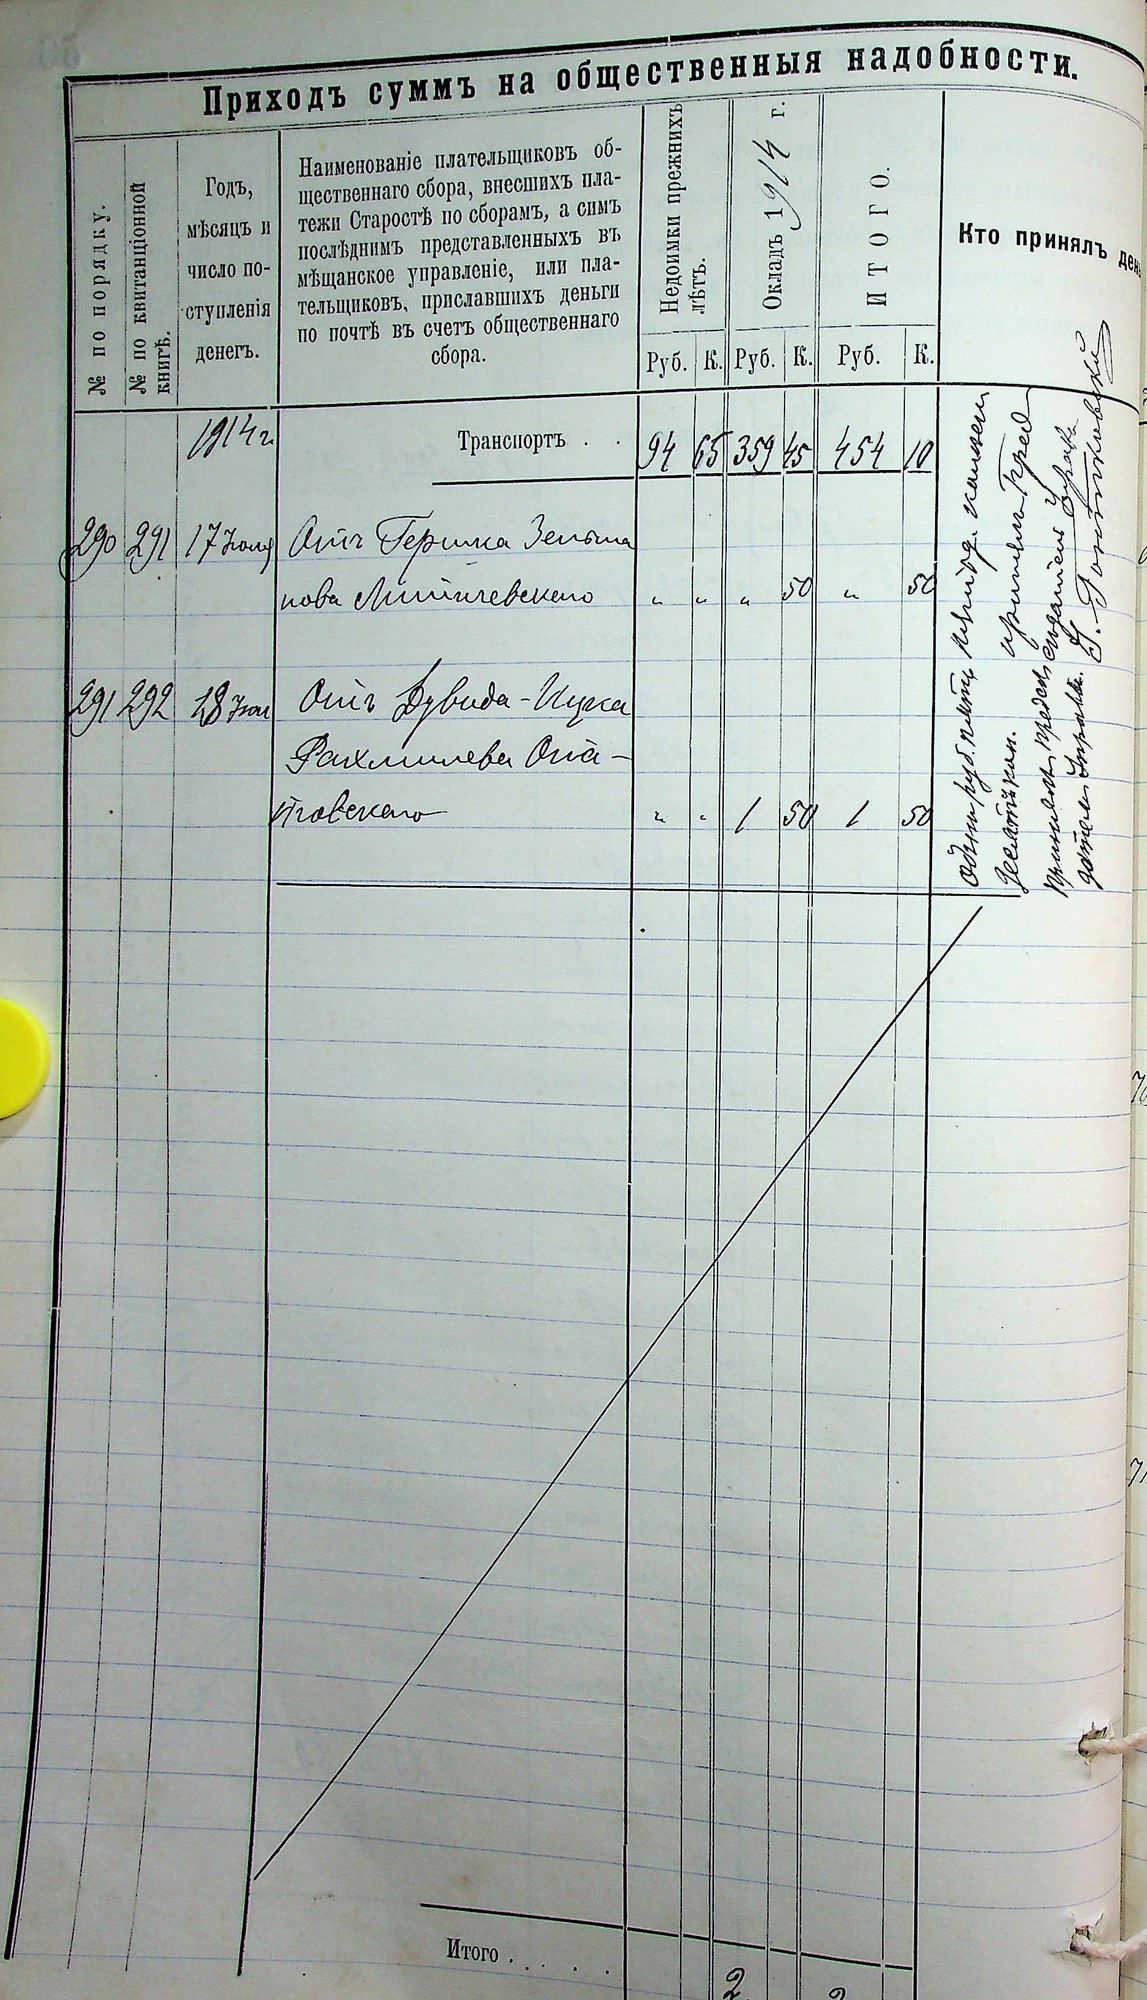 Приходъ суммъ на общественныя надобности.
№ по порядку.
№ по квитанціонной
книгѣ.
Годъ,
мѣсяцъ и
число по-
ступленія
денегъ.
Наименованіе плательщиковъ об-
щественнаго сбора, внесшихъ пла-
тежи Старостѣ по сборамъ, а симъ
послѣднимъ представленныхъ въ
мѣщанское управленіе, или пла-
тельщиковъ, приславшихъ деньги
по почтѣ въ счетъ общественнаго
сбора.
Недоимки прежнихъ
лѣтъ.
Окладъ 1914 г.
ИТОГО.
Кто принялъ ден
Руб. К. Руб. К. Руб. К.
1914 г. Транспортъ . . 94 65 359 45 454 10
290 291 17 Іюля Отъ Гершка Зельма
нова " " " 50 " 50
291 292 28 Отъ Дувида-Ицка
Рахмилева Опа-
товскаго " " 1 50 1 50
Одинъ руб. пять
десятъ коп. принялъ
Итого . . . . .
2 2